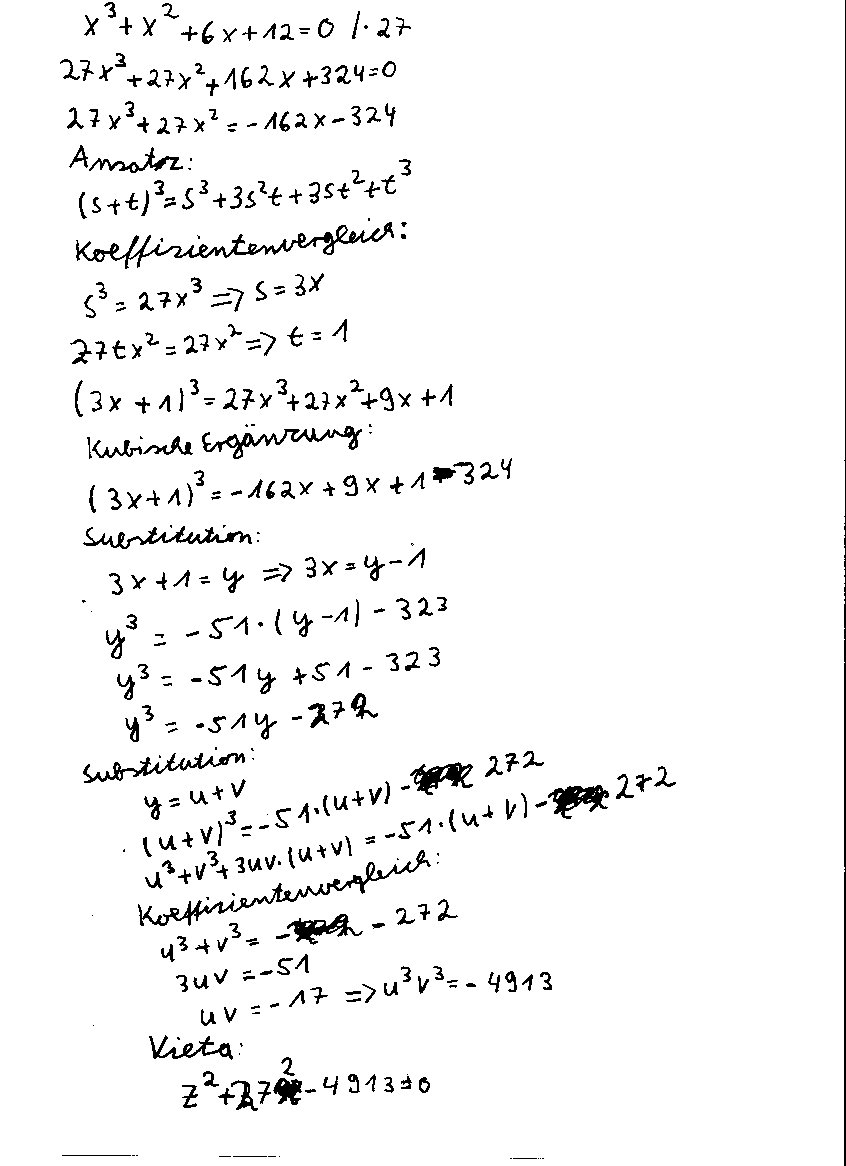 x³+x²+6x+12=0 /·27
27x³+27x²+162x+324=0
27x³+27x²=-162x-324
Ansatz:
(s+t)³=s³+3s²t+3st²+t³
Koeffizientenvergleich:
s³=27x³⇒s=3x
27tx²=27x²⇒t=1
(3x+1)³=27x³+27x²+9x+1
Kubische Ergänzung:
(3x+1)³=-162x+9x+1-324
Substitution:
3x+1=y⇒3x=y-1
y³=-51·(y-1)-323
y³=-51y+51-323
y³=-51y-272
Substitution:
y=u+v
(u+v)³=-51·(u+v)-272
u³+v³+3uv·(u+v)=-51·(u+v)-272
Koeffizientenvergleich:
u³+v³=--272
3uv=-51
uv=-17⇒u³v³=-4913
Vieta:
z²+272-4913=0